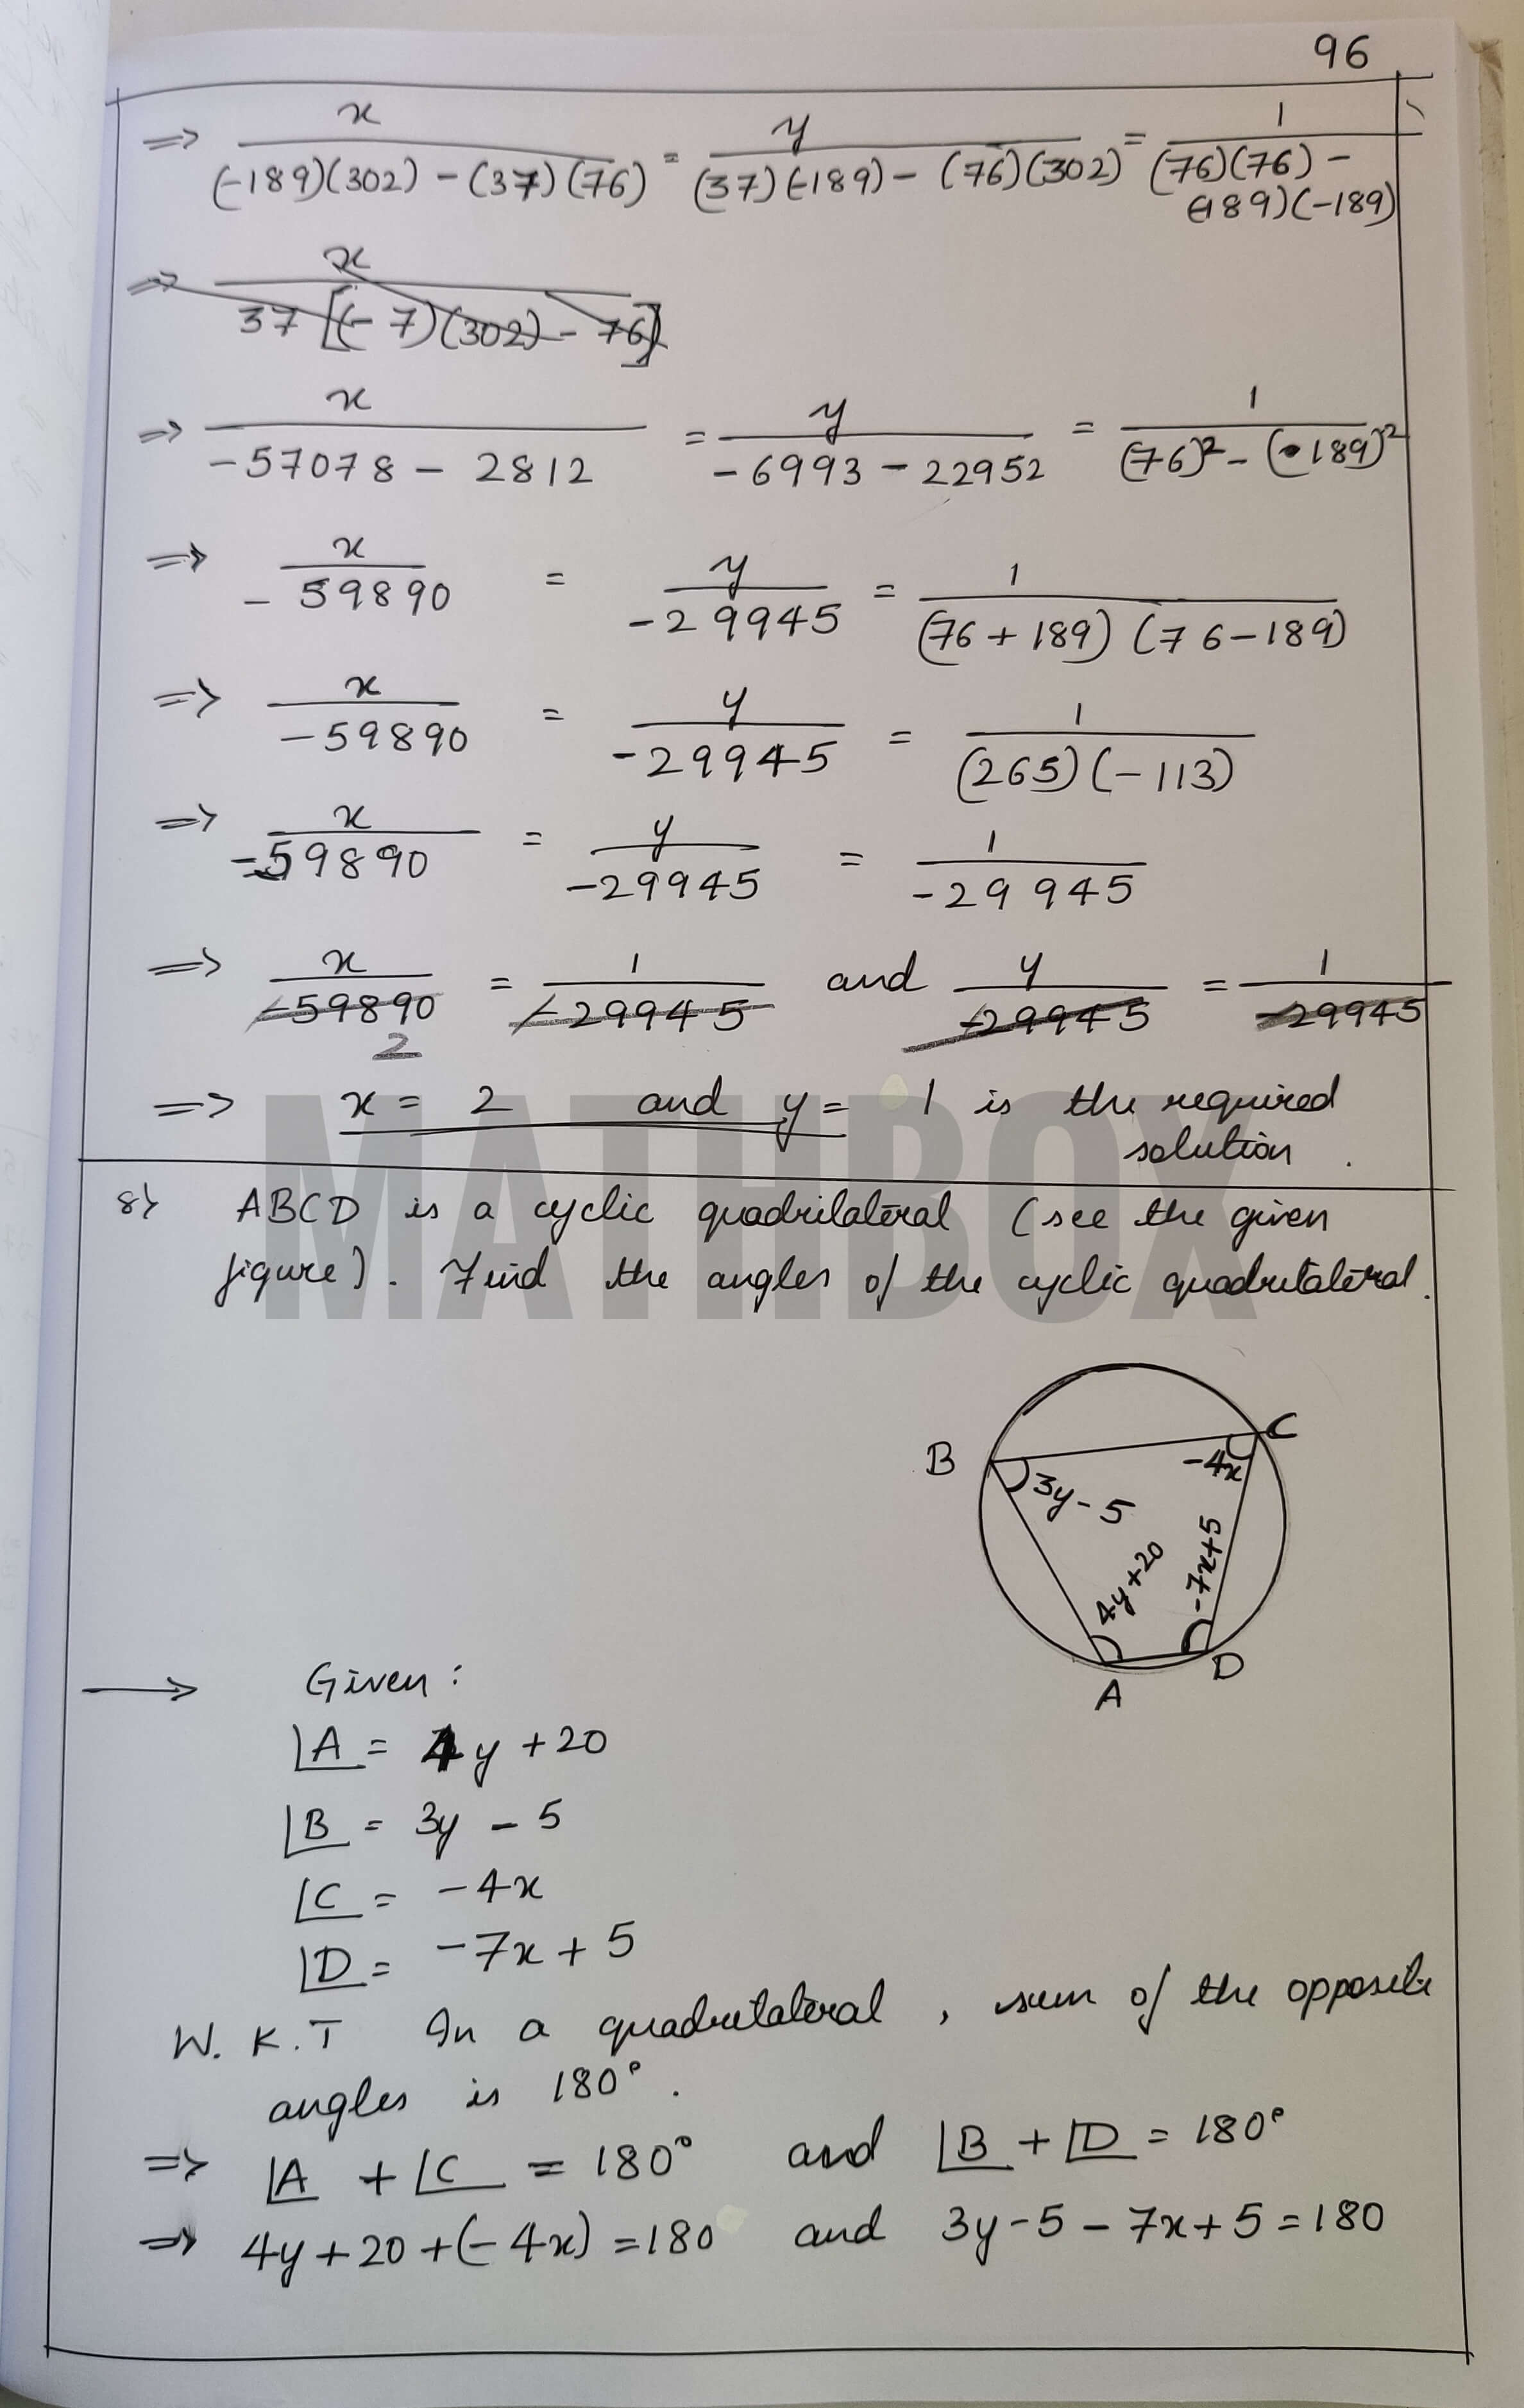 96
⇒ x/((-189)(302) - (37)(76)) = y/((37)(-189) - (76)(302)) = 1/((76)(76) - (-189)(-189))
⇒ x/(37[(-7)(302) - 76])
⇒ x/(-57078 - 2812) = y/(-6993 - 22952) = 1/((76)² - (189)²)
⇒ x/(-59890) = y/(-29945) = 1/((76+189)(76-189))
⇒ x/(-59890) = y/(-29945) = 1/((265)(-113))
⇒ x/(-59890) = y/(-29945) = 1/(-29945)
⇒ x/(-59890) = 1/(-29945) and y/(-29945) = 1/(-29945)
2
⇒ x = 2 and y = 1 is the required
solution.
MATHBOX
8) ABCD is a cyclic quadrilateral (see the given
figure). Find the angles of the cyclic quadrilateral.
B
C
3y-5
-4x
4y+20
-7x+5
A
D
→ Given:
∠A = 4y + 20
∠B = 3y - 5
∠C = -4x
∠D = -7x + 5
W.K.T In a quadrilateral, sum of the opposite
angles is 180°.
⇒ ∠A + ∠C = 180° and ∠B + ∠D = 180°
⇒ 4y + 20 + (-4x) = 180 and 3y - 5 - 7x + 5 = 180